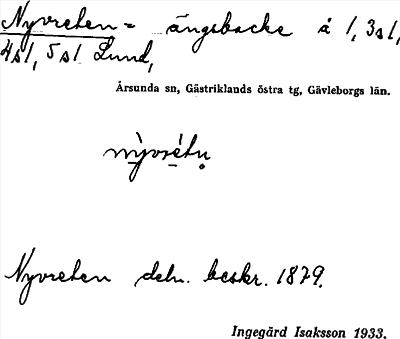 Nyvreten = ängsbacke å 1, 3sl,
4sl, 5sl Lund,
Årsunda sn, Gästriklands östra tg, Gävleborgs län.
nỳvrétu̥
Nyvreten deln. beskr. 1879.
Ingegärd Isaksson 1933.